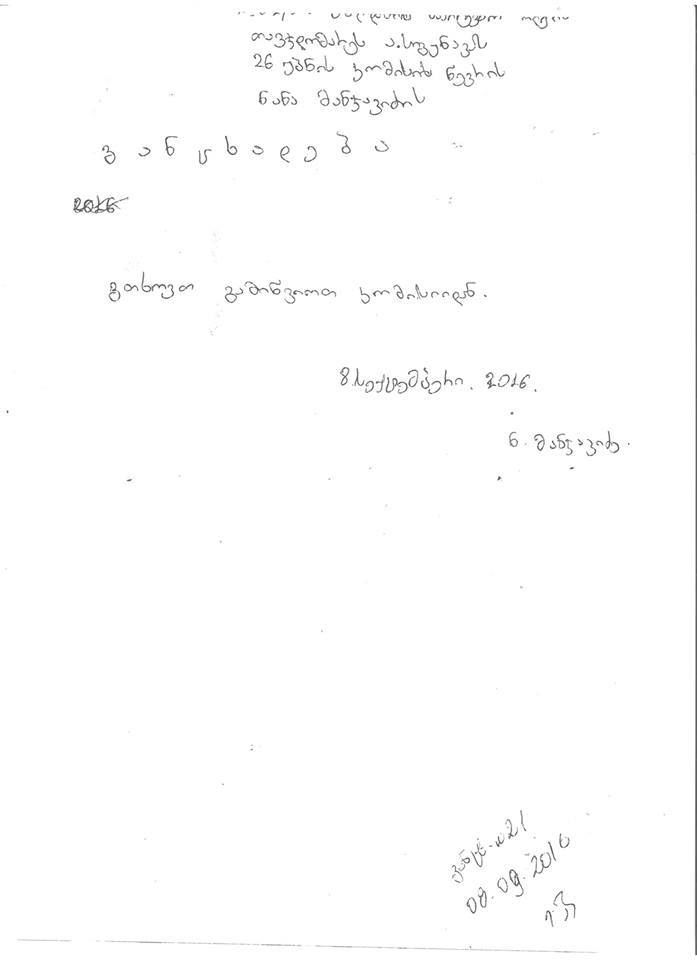 თავჯდომარეს ა. სეფენავს
26 უბნის კომისიის წევრის
ნანა მანჯავიძის
განცხადება
გთხოვთ გამიწვიოთ კომისიიდან.
8 სექტემბერი. 2016.
ნ. მანჯავიძე.
განცხ. N 21
08.09.2016